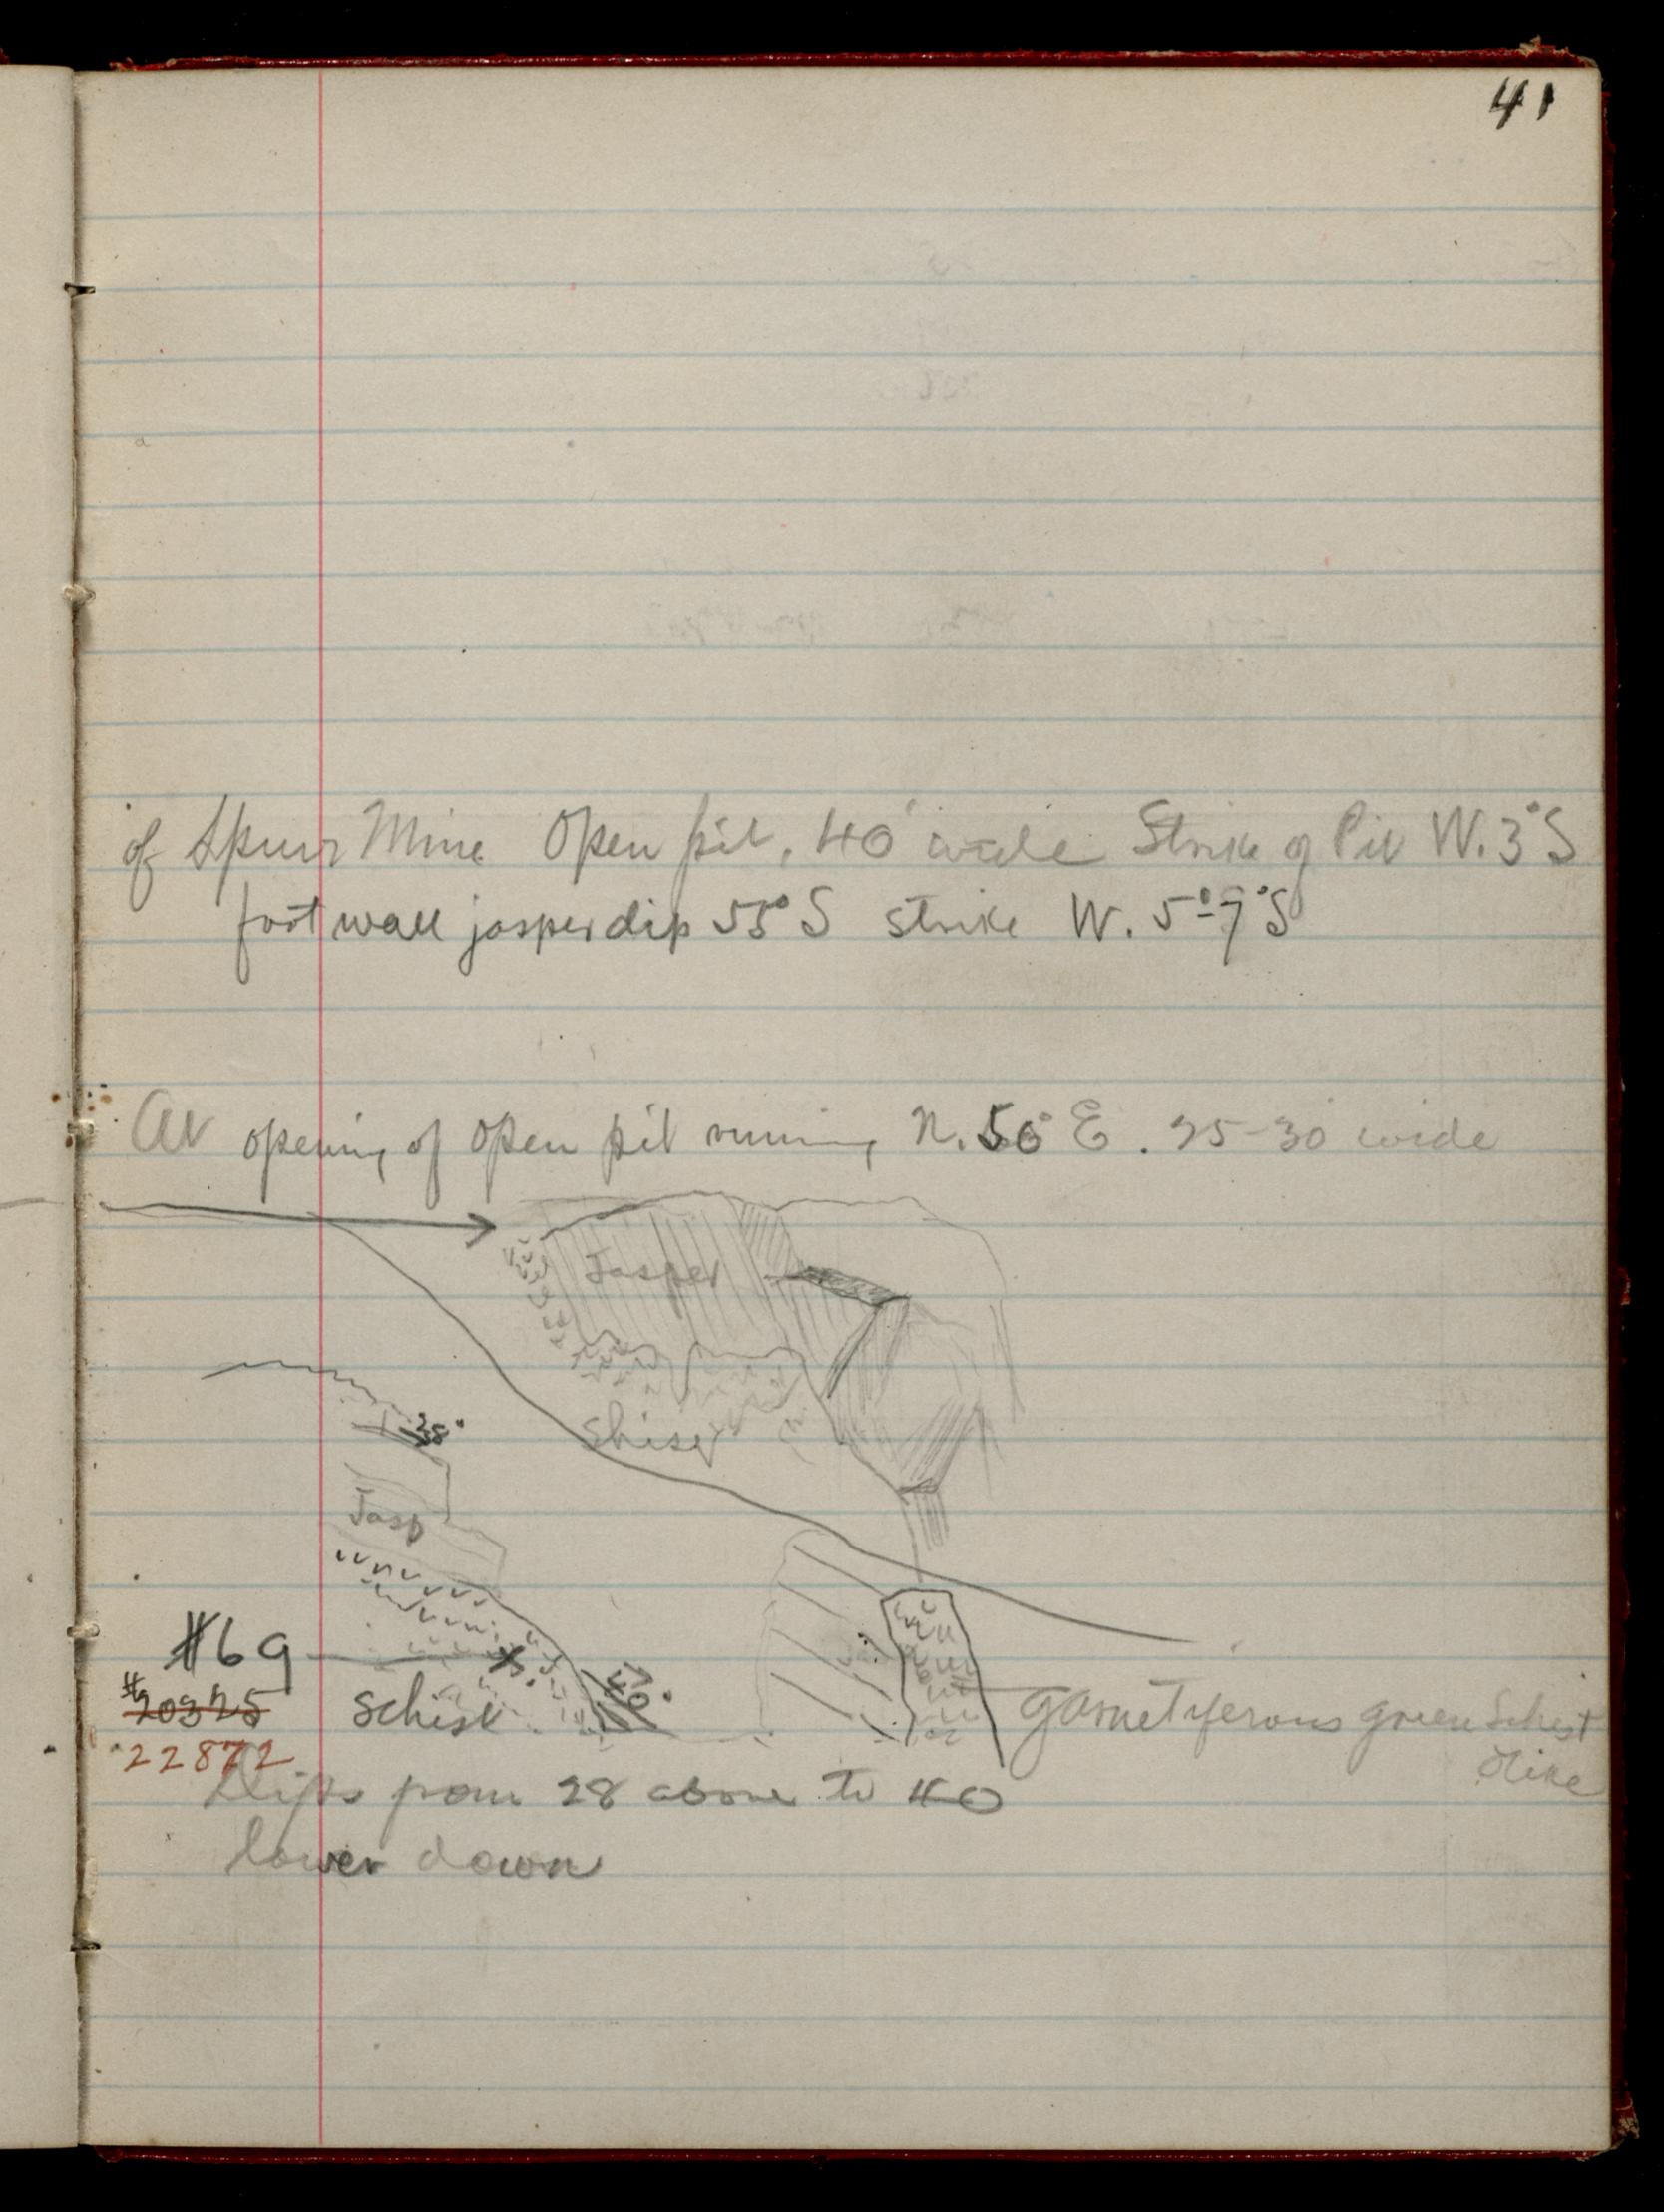 41
of Spurr Mine Open pit, 40' wide Strike of Pit W. 3° S
foot wall jasper dip 55° S strike W. 5°-7° S
At opening of open pit running N. 50° E. 25-30 wide
Jasper
28°
Shist
Jasp
#69
#20325
Schist
40°
22872
garnetiferous green Schist
dike
Dips from 28 above to 40
lower down